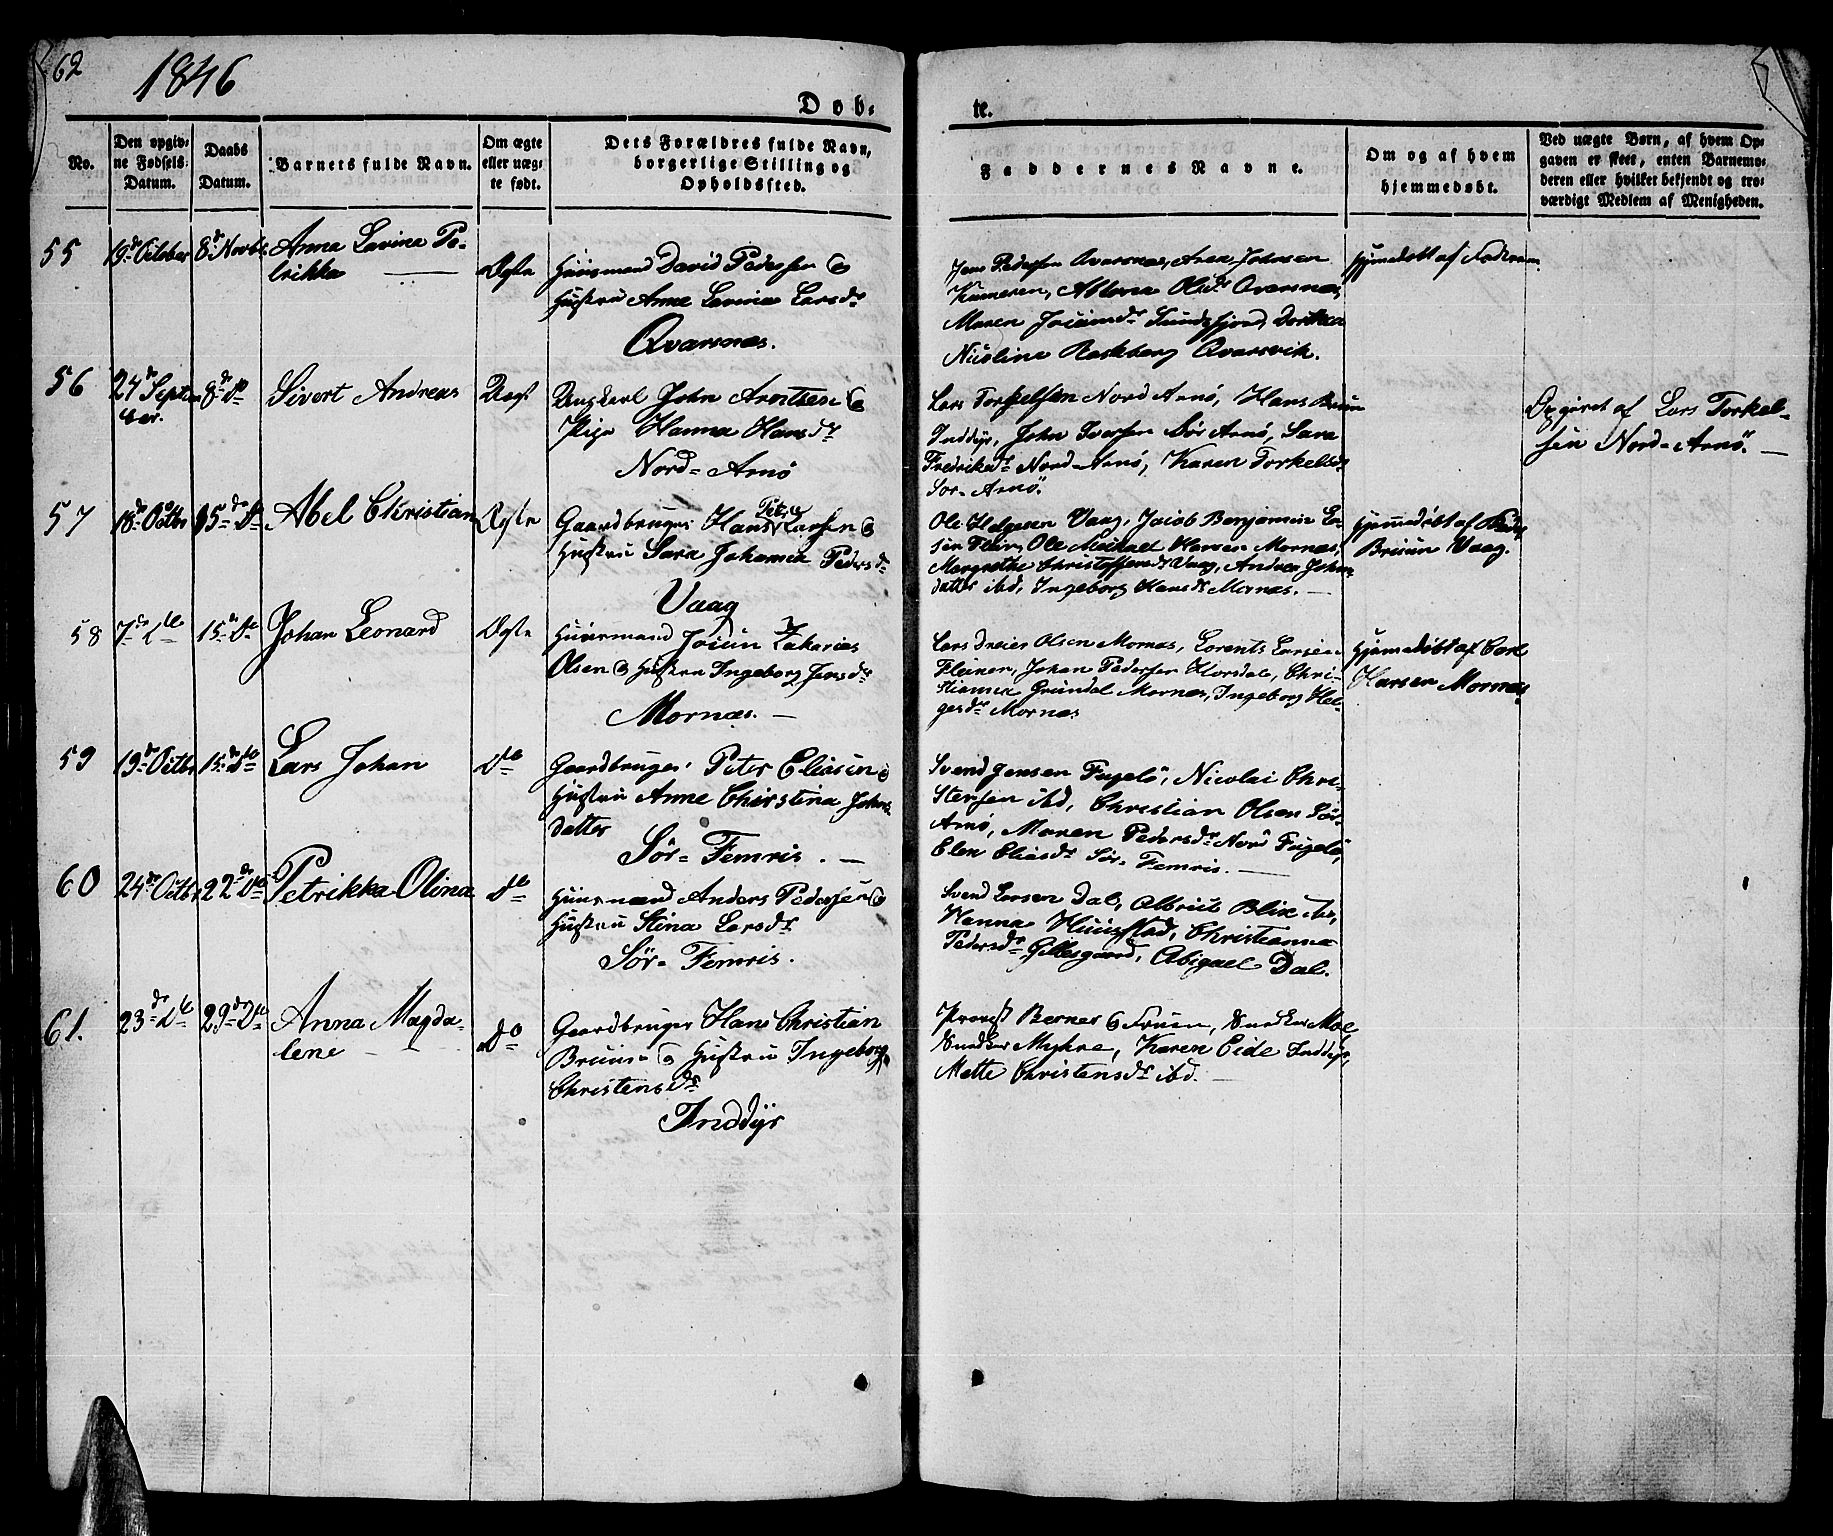 62
1846
Døb-
te.
No.
Den opgiv-
ne Fødsels-
Datum.
Daabs
Datum.
Barnets fulde Navn.
Om ægte
eller uæg-
te født.
Dets Forældres fulde Navn,
borgerlige Stilling og
Opholdssted.
Faddernes Navne.
Om og af hvem
hjemmedøbt.
Ved uægte Børn, af hvem Op-
gaven er skeet, enten Barnemo-
deren eller hvilket bekjendt og tro-
værdigt Medlem af Menigheden.
55
19de October
8de Novbr
Anna Lavina Pe-
trikka
Ægte
Huusmand David Pedersen &
Hustru Anne Lavina Larsdr
Qvarsnæs.
Jens Pedersen Qvarsnæs, Aron Johnsen
Olsdr Qvarsnæs,
Maren Joakimdr Sundsfjord, Dorthea
Nicoline Raskberg Qvarsvik.
Hjemedøbt af Faderen
56
24de Septem-
ber.
8de Do
Sivert Andreas
Uægt
Ungkarl John Arntsen &
Pige Hanna Hansdr
Nord-Arnö
Lars Torkelsen Nord Arnö, Hans Bruun
Inddyr, John Iversen Sör Arnö, Sara
Fredriksdr Nord-Arnö, Karen Torkelsdr
Sör-Arnö.
Opgivet af Lars Torkel-
sen Nord-Arnö.
57
18de Octbr
15de Do
Abel Christian
Ægte
Gaardbruger Hans Peter Larsen &
Hustru Sara Johanna Pedersdr
Vaag
Ole Helgesen Vaag, Jacob Benjamin La-
sen Flein, Ole Michael Hansen Mornæs,
Margrethe Christoffersdr Vaag, Andrea Johns-
datter ibd, Ingeborg Hansdr Mornæs.
Hjemmedöbt af
Bruun Vaag.
58
7de Do
15de Do
Johan Leonard
Ægte
Huusmand Joakim Zakarias
Olsen & Hustru Ingeborg Jensdr
Mornæs.
Lars Dreier Olsen Mornæs, Lorents Larsen
Fleinen, Johan Pedersen Horsdal, Chri-
stianna Grundal Mornæs, Ingeborg Hel-
gesdr Mornæs
Hjemmedöbt af Carl
Hansen Mornæs
59
19de Octbr
15de Do
Lars Johan
Do
Gaardbruger Peter Eliasen &
Hustru Anne Christina Johns-
datter
Sör-Femris.
Svend Jensen Fugelö, Nicolai Chri-
stensen ibd, Christian Olsen Sör-
Arnö, Maren Pedersdr Nord Fugelö,
Elen Eliasdr Sör-Femris.
60
24de Octbr
22de Do
Petrikka Olina
Do
Huusmand Anders Pedersen &
Hustru Stina Larsdr
Sör-Femris.
Svend Larsen Dal, Albrict Blix
Hanna Huugstad, Christianna
Pedersdr Gildesgaard, Abigael Dal.
61.
23de Do
29de Do
Anna Magda-
lene
Do
Gaardbruger Hans Christian
Bruun & Hustru Ingeborg
Christensdr
Inddyr
Provst Berner & Fruen, Snedker Moe
Snedker Myhre, Karen Eide Inddyr,
Mette Christensdr ibd.